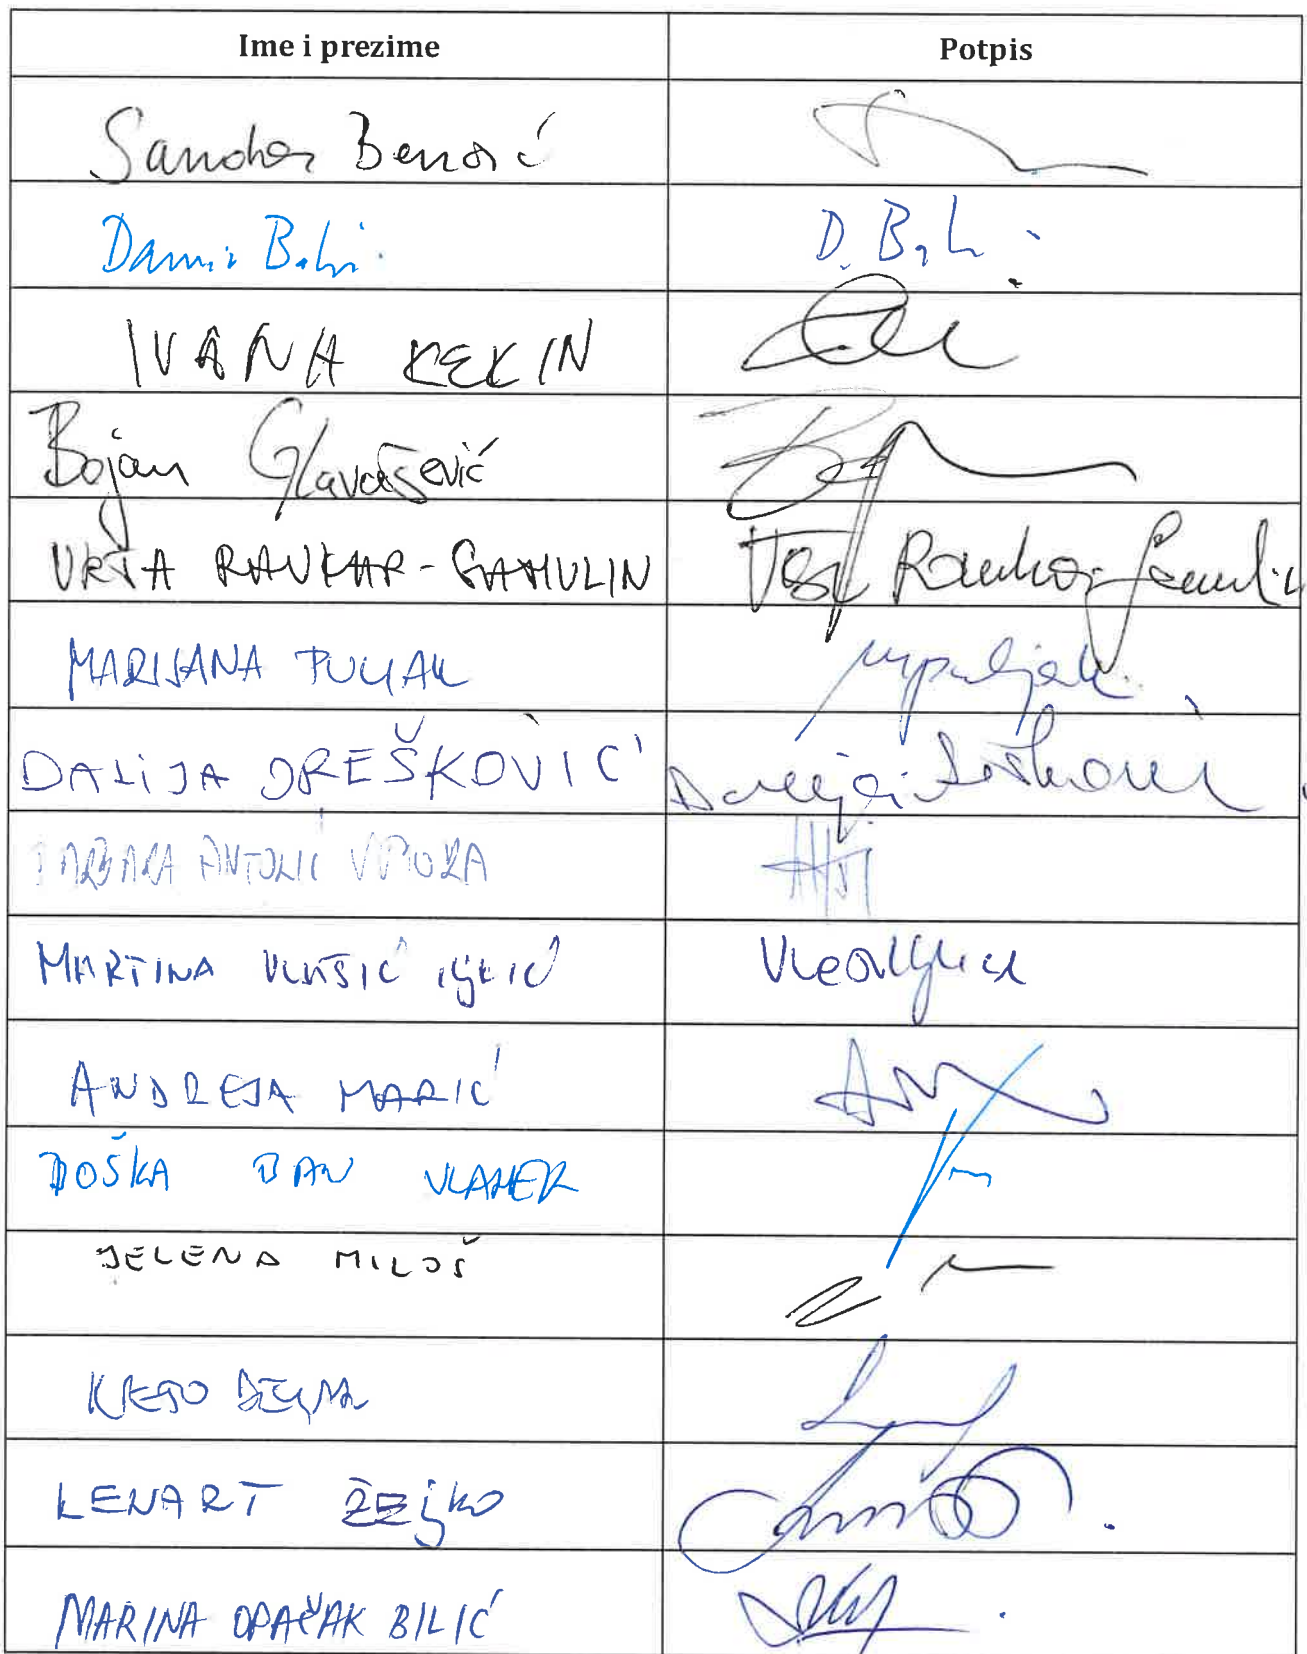 Ime i prezime Potpis
Sandra Benčić
Damir Bakić D. Bakić
IVANA KEKIN
Bojan Glavašević
URŠA RAUKAR-GAMULIN Urša Raukar-Gamulin
MARIJANA PULJAK mpuljak
DALIJA OREŠKOVIĆ Dalija Orešković
BARBARA ANTOLIĆ VUPORA
MARTINA VLAŠIĆ ILJKIĆ
ANDREJA MARIĆ
BOŠKA BAN VLAHEK
JELENA MILOŠ
KREŠO BELJAK
LENART ŽELJKO
MARINA OPAČAK BILIĆ